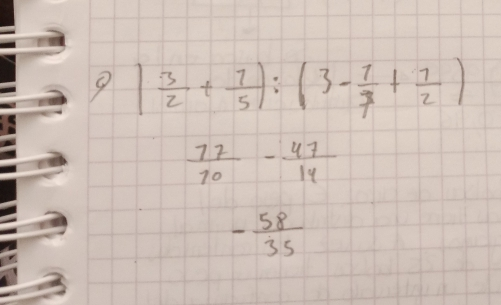 (3/2 + 1/5) : (3 - 1/7 + 1/2)
17/10 - 47/14
- 58/35